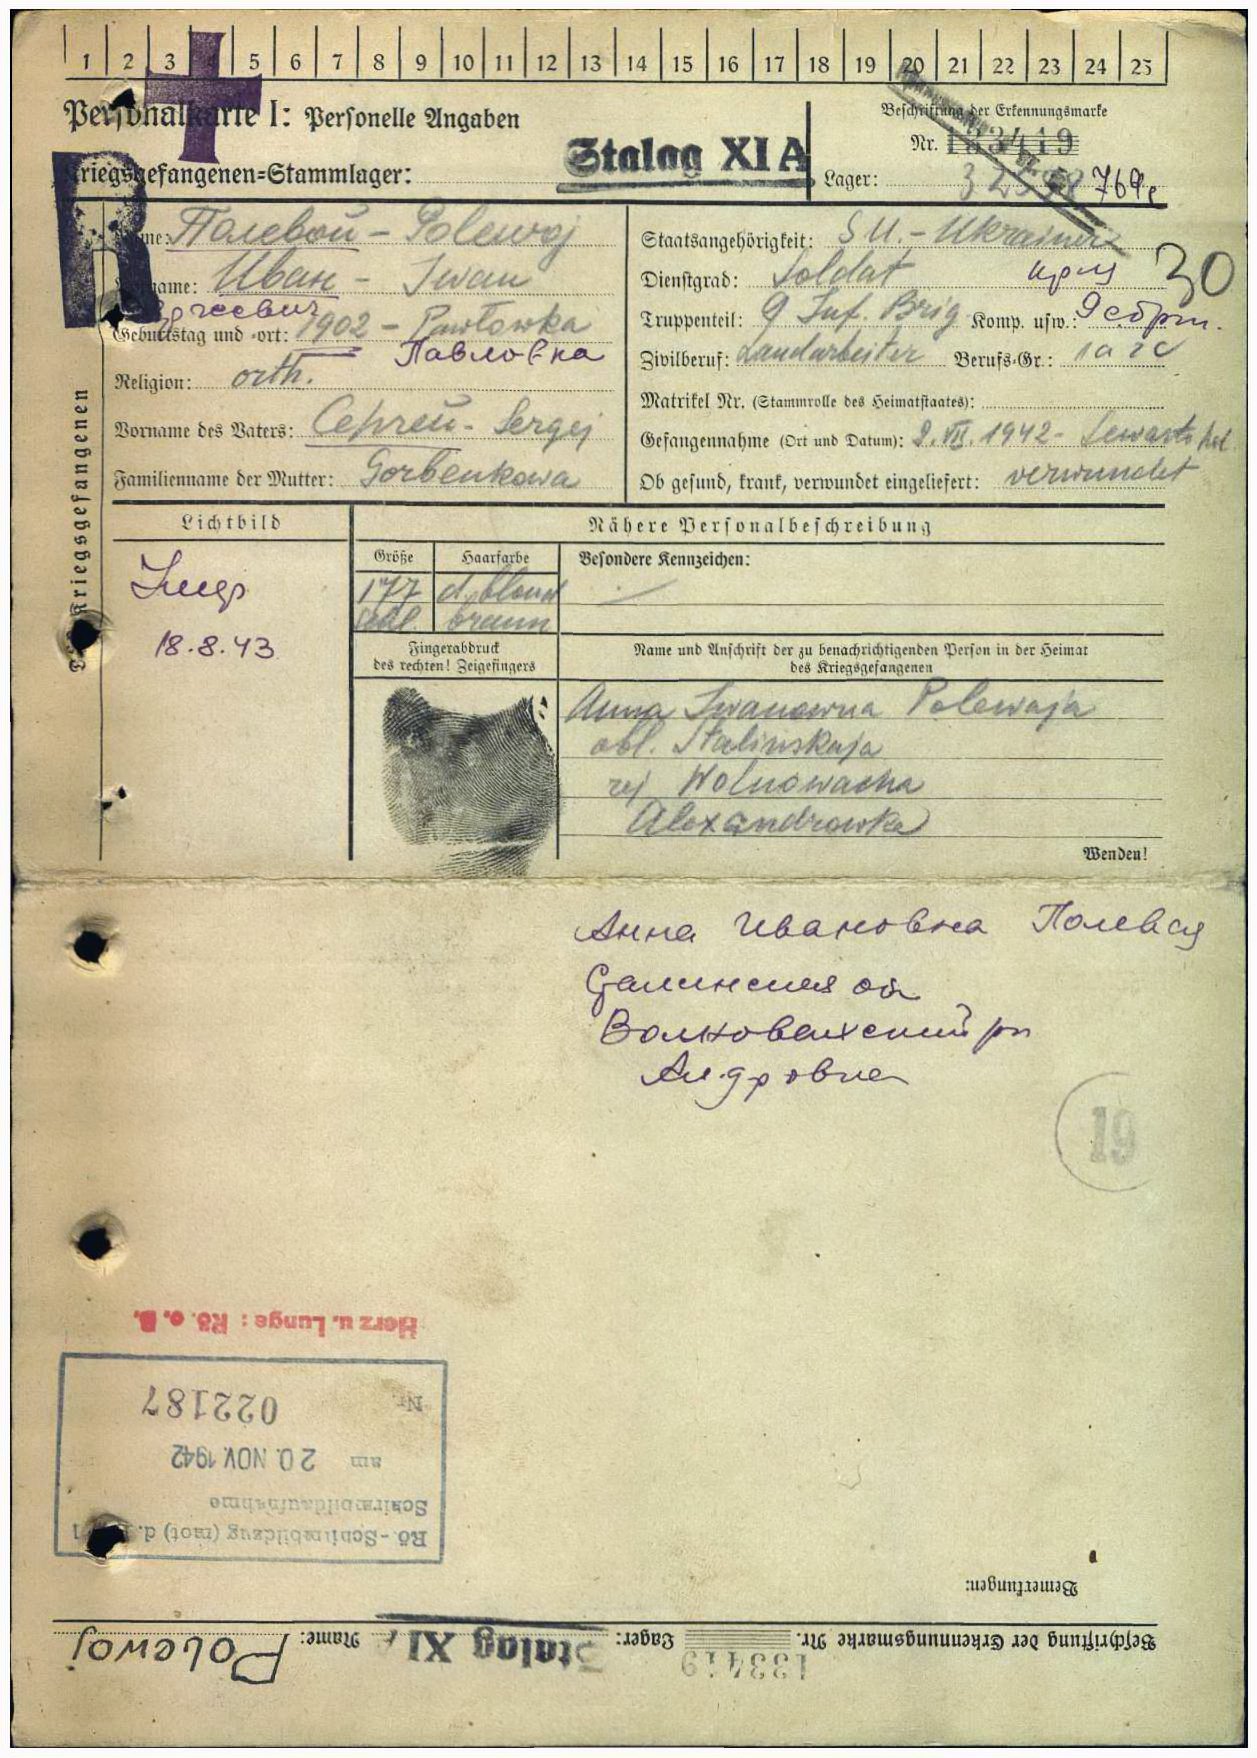 1 2 3 5 6 7 8 9 10 11 12 13 14 15 16 17 18 19 20 21 22 23 24 25
Personalkarte I: Personelle Angaben
Beschriftung der Erkennungsmarke
Nr. 133419
Kriegsgefangenen=Stammlager: Stalag XI A
Lager: 769
R
Name: Полевой - Polewoj
Vorname: Иван - Iwan
Geburtstag und -ort: 1902 - Pawlowka
Павловка
Religion: orth.
Vorname des Vaters: Сергей - Sergej
Familienname der Mutter: Gorbenkowa
Staatsangehörigkeit: SU.-Ukrainer
30
Dienstgrad: Soldat
Truppenteil: 9 Inf. Brig Komp. usw.: 9 сбрт.
Zivilberuf: Landarbeiter Berufs-Gr.:
Matrikel Nr. (Stammrolle des Heimatstaates):
Gefangennahme (Ort und Datum): 2.VII.1942 - Sewastopol
Ob gesund, krank, verwundet eingeliefert: verwundet
Des Kriegsgefangenen
Lichtbild
18.8.43
Nähere Personalbeschreibung
Größe Haarfarbe Besondere Kennzeichen:
177 d. blond
braun
Fingerabdruck
des rechten! Zeigefingers
Name und Anschrift der zu benachrichtigenden Person in der Heimat
des Kriegsgefangenen
Anna Iwanowna Polewaja
obl. Stalinskaja
rej Wolnowacha
Alexandrowka
Wenden!
Анна Ивановна Полевая
Сталинская об
Волновахский рн
19
Herz u. Lunge: Rö. o. B.
Nr. 022187
am 20. NOV. 1942
Schirmbildaufnahme
Rö.-Schirmbildzug (mot) d.
Bemerkungen:
Beschriftung der Erkennungsmarke Nr. 133419 Lager: Stalag XI A Name: Polewoj